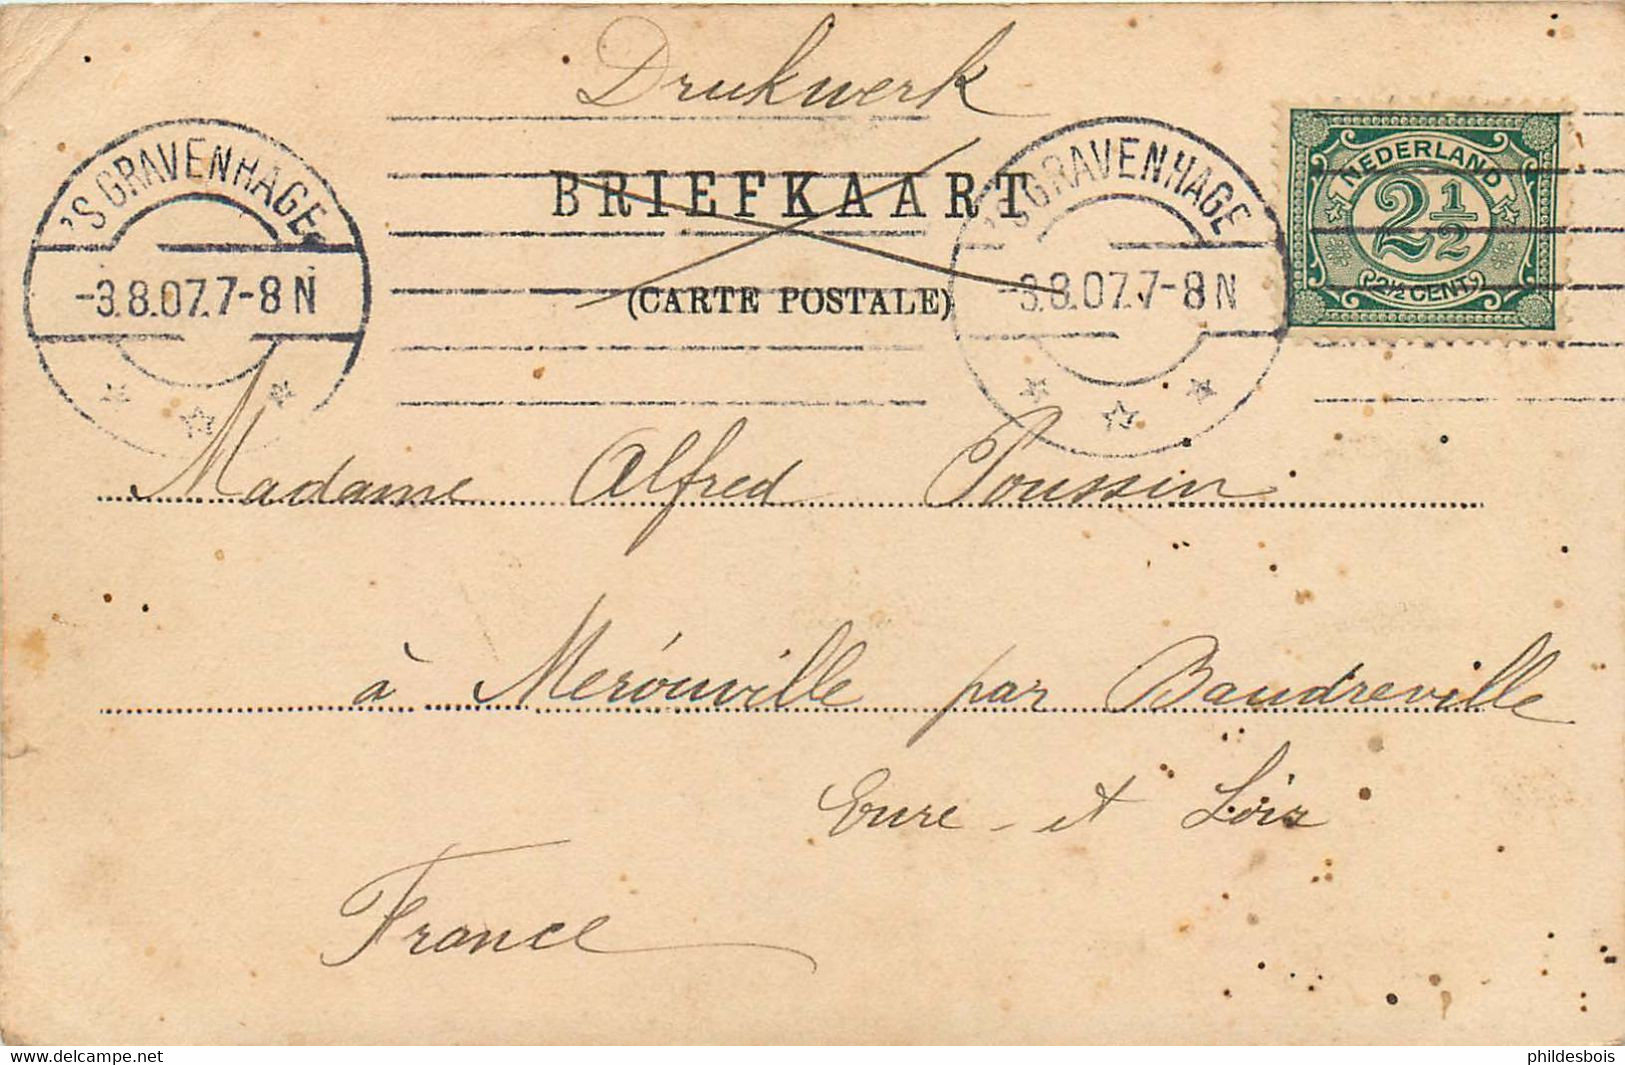 Drukwerk
BRIEFKAART
(CARTE POSTALE)
'S GRAVENHAGE
-3.8.07.7-8N
'S GRAVENHAGE
-3.8.07.7-8N
NEDERLAND
2 1/2
2½ CENT
Madame Alfred Poussin
à Merouville par Baudreville
Eure-et Loir
France
www.delcampe.net
phildesbois